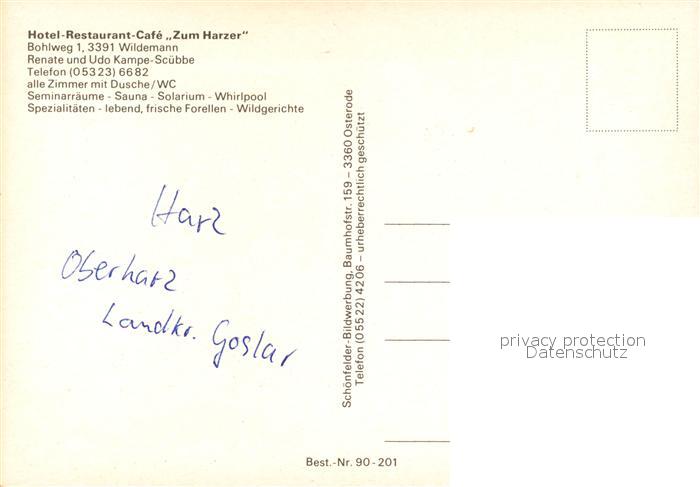 Hotel-Restaurant-Café „Zum Harzer“
Bohlweg 1, 3391 Wildemann
Renate und Udo Kampe-Scübbe
Telefon (05323) 6682
alle Zimmer mit Dusche/WC
Seminarräume - Sauna - Solarium - Whirlpool
Spezialitäten - lebend, frische Forellen - Wildgerichte
Harz
Oberharz
Landkr. Goslar
Schönfelder-Bildwerbung, Baumhofstr. 159 – 3360 Osterode
Telefon (05522) 4206 – urheberrechtlich geschützt
privacy protection
Datenschutz
Best.-Nr. 90-201